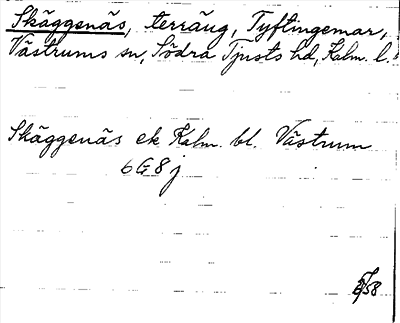 Skäggenäs, terräng, Tyftingemar,
Västrums sn, Södra Tjusts hd, Kalm. l.
Skäggenäs ek Kalm. bl. Västrum
6G8j
/58